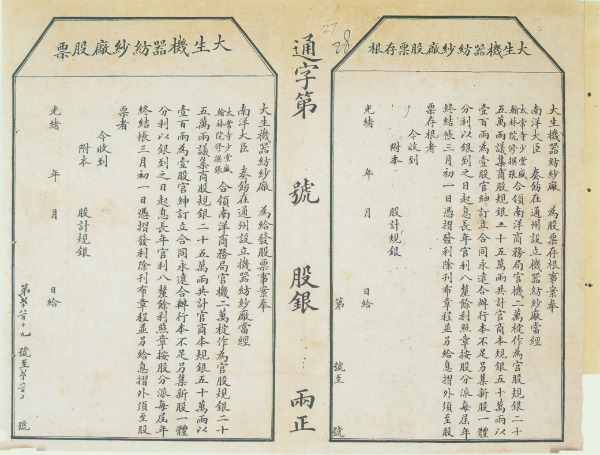 大生機器紡紗廠股票存根
大生機器紡紗廠 為股票存根事案奉
南洋大臣 奏飭在通州設立機器紡紗廠當經
太常寺少堂盛
翰林院修撰張
合領南洋商務局官機二萬梃作為官股規銀二十
五萬兩議集商股規銀二十五萬兩共計官商本規銀五十萬兩以
壹百兩為壹股官紳訂立合同永遠合辦行本不足另集新股一體
分利以銀到之日起息長年官利八釐餘利照章按股分派每屆年
終結帳三月初一日憑摺發利除刊布章程並另給息摺外須至股
票存根者
今收到
附本 股計規銀
光緒 年 月 日給
第 號至 號
28
通字第 號 股銀 兩正
大生機器紡紗廠股票
大生機器紡紗廠 為給發股票事案奉
南洋大臣 奏飭在通州設立機器紡紗廠當經
太常寺少堂盛
翰林院修撰張
合領南洋商務局官機二萬梃作為官股規銀二十
五萬兩議集商股規銀二十五萬兩共計官商本規銀五十萬兩以
壹百兩為壹股官紳訂立合同永遠合辦行本不足另集新股一體
分利以銀到之日起息長年官利八釐餘利照章按股分派每屆年
終結帳三月初一日憑摺發利除刊布章程並另給息摺外須至股
票者
今收到
附本 股計規銀
光緒 年 月 日給
號至 號